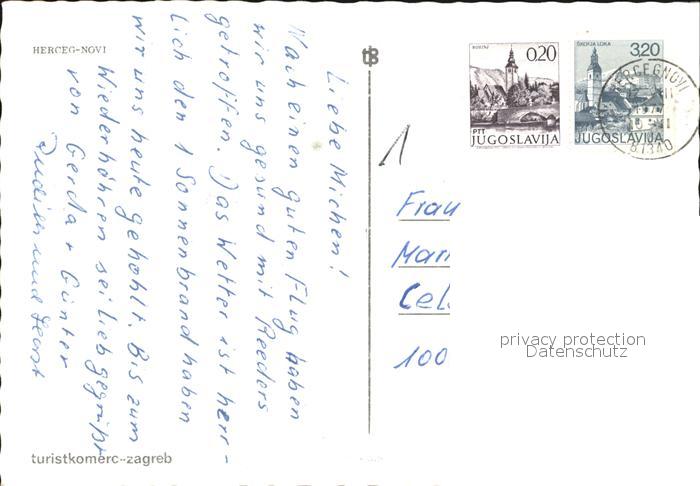 HERCEG-NOVI
Liebe Michen!
Nach einen guten Flug haben
wir uns gesund mit Reeders
getroffen. Das Wetter ist herr-
lich den 1 Sonnenbrand haben
wir uns heute gehohlt. Bis zum
Wiederhöhren sei Lieb gegrüßt
von Gerda + Günter
Judith und Horst
turistkomerc-zagreb
BOHINJ
0,20
PTT
JUGOSLAVIJA
ŠKOFJA LOKA
3,20
JUGOSLAVIJA
HERCEGNOVI
81340
1
Frau
Mari
Cel.
100
privacy protection
Datenschutz